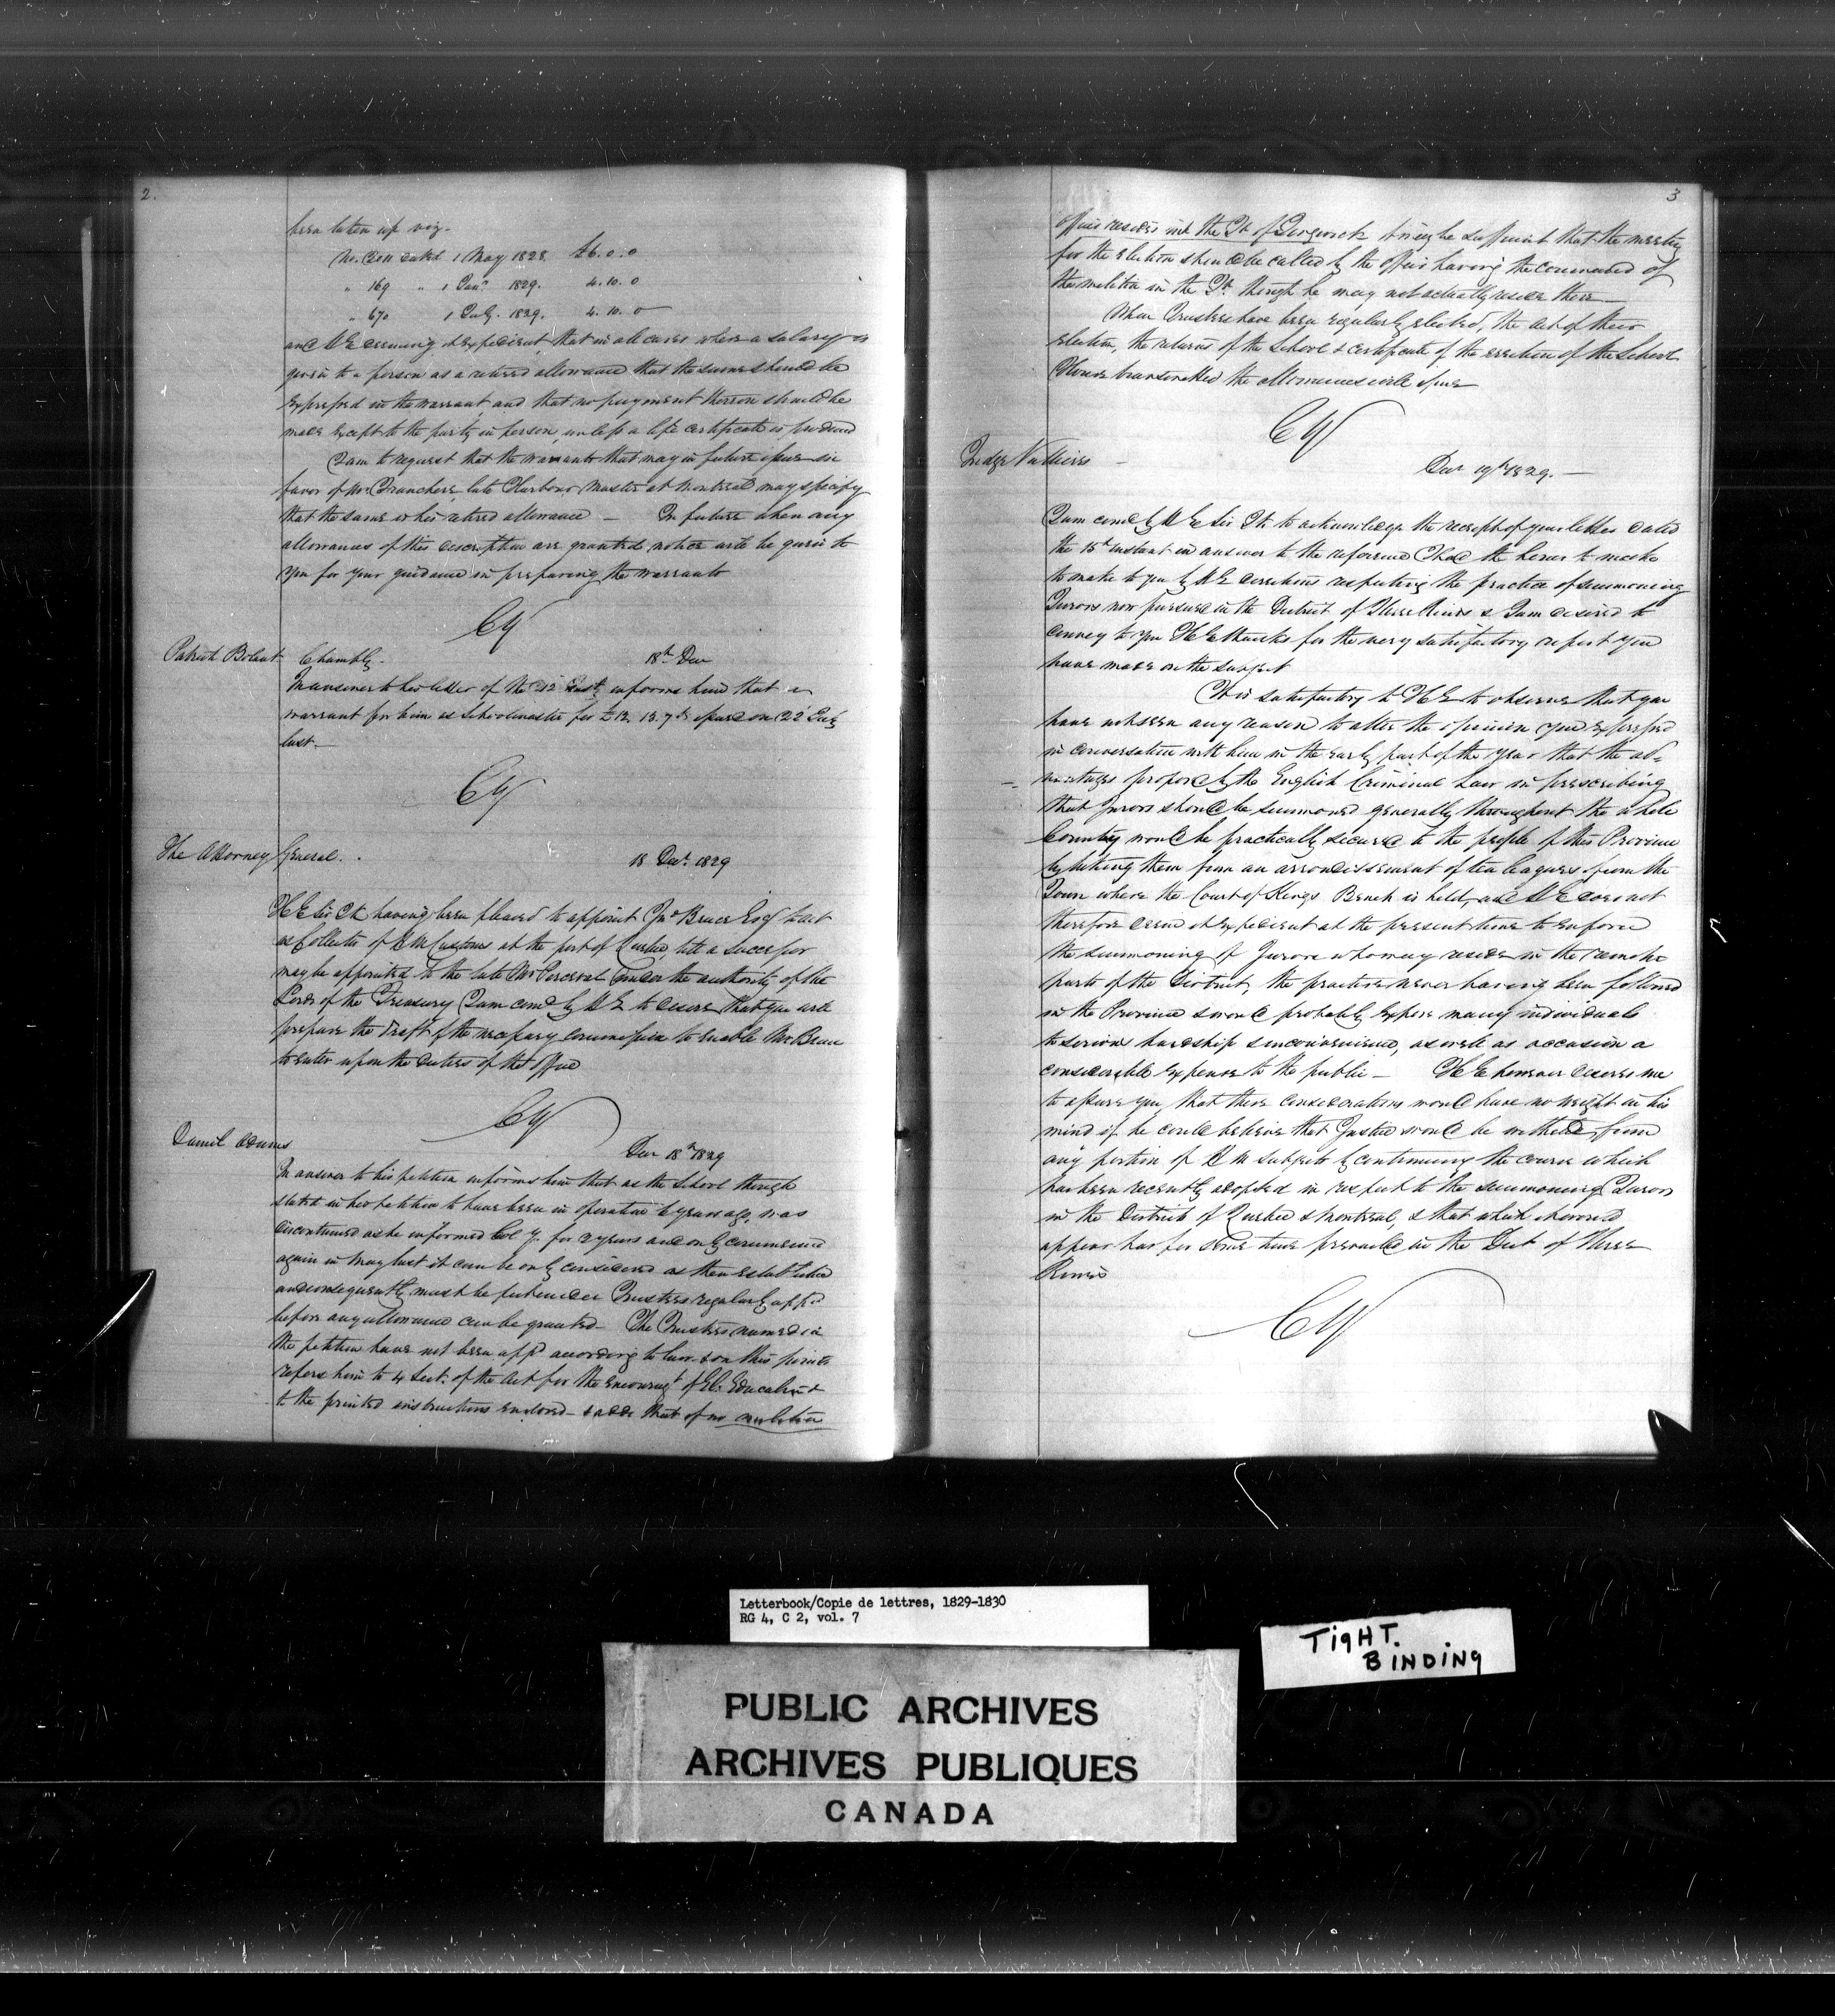 2.
been taken up viz.
No. dated 1 May 1828 £6.0.0
" 169 " 1 Jany 1829. 4.10.0
" 670 1 July. 1829. 4.10.0
and HE deeming it expedient, that in all cases where a salary is
given to a person as a retired allowance that the same should be
expressed in the warrant, and that no payment thereon should be
made except to the party in person, unless a life certificate is produced
I am to request that the warrants that may in future issue in
favor of Mr. late Harbour Master at Montreal may specify
that the same is his retired allowance — In future when any
allowances of this description are granted notice will be given to
you for your guidance in preparing the warrants
CY
Patrick Chambly. 18th Dec
In answer to his letter of the 12 Inst. informs him that a
warrant for him as Schoolmaster for £12. 13. 7 issued on 22d July
last.—
CY
The Attorney General. 18 Decr. 1829
HE Sir Jk having been pleased to appoint Jno Bruce Esqr to act
as Collector of HM Customs at the port of Quebec, till a successor
may be appointed to the late Mr Perceval under the authority of the
Lords of the Treasury I am comd by HE to desire that you will
prepare the draft of the necessary commission to enable Mr Bruce
to enter upon the duties of the office
CY
Daniel Adams Decr 18th 1829
In answer to his petition informs him that as the School though
stated in his petition to have been in operation 6 years ago, was
discontinued as he informed Col Y. for 2 years and only commenced
again in May last it can be only considered as then established
and consequently must be put under Trustees regularly appd
before any allowance can be granted— The Trustees named in
the petition have not been appd according to law & on this point
refers him to 4 Sect. of the Act for the encouragt of El. Education &
to the printed instructions enclosed— & adds that if no militia
3
officer resides in the Tp of it might be sufficient that the meeting
for the election should be called by the officer having the command of
the militia in the Tp. though he may not actually reside there—
When Trustees have been regularly elected, the act of their
election, the returns of the School & certificate of the erection of the School
House transmitted the allowances will issue
CY
Judge Vallieres — Decr 19th 1829.—
I am comd by HE Sir Jk to acknowledge the receipt of your letter dated
the 15th instant in answer to the reference I had the honor to make
to make to you by HE directions respecting the practice of summoning
Jurors now pursued in the District of Three Rivers & I am desired to
convey to you HE thanks for the very satisfactory report you
have made on the subject
It is satisfactory to HE to observe that you
have not seen any reason to alter the opinion you expressed
in conversation with him in the early part of the year that the ad=
vantages proposed by the English Criminal Law in prescribing
that Jurors should be summoned generally throughout the whole
County would be practically secured to the people of this Province
by taking them from an arrondissement of ten leagues from the
Town where the Court of Kings Bench is held, and HE does not
therefore deem it expedient at the present time to enforce
the summoning of Jurors who may reside in the remote
parts of the District, the practice never having been followed
in the Province & would probably expose many individuals
to serious hardship & inconvenience, as well as occasion a
considerable expense to the public— HE however desires me
to assure you, that these considerations would have no weight in his
mind if he could believe that Justice would be withheld from
any portion of HM subjects by continuing the course which
has been recently adopted in respect to the summoning Jurors
in the Districts of Quebec & Montreal, & that which it would
appear has for some time prevailed in the Dist of Three
Rivers
CY
Letterbook/Copie de lettres, 1829-1830
RG 4, C 2, vol. 7
TIGHT.
BINDING
PUBLIC ARCHIVES
ARCHIVES PUBLIQUES
CANADA